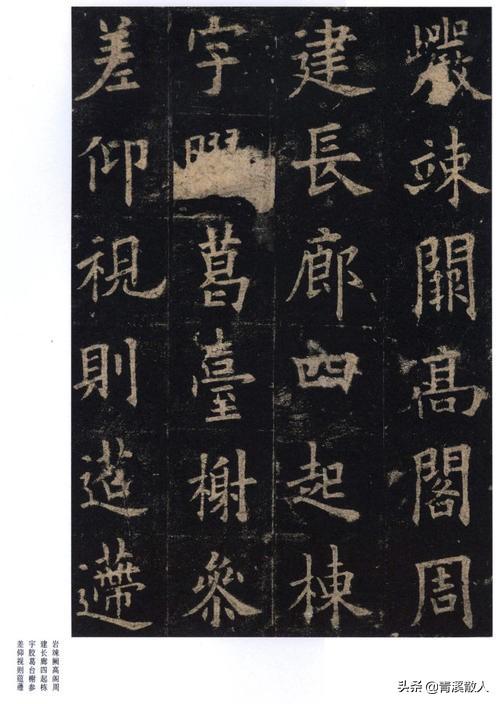 巖竦闕高閣周
建長廊四起棟
宇葛臺榭參
差仰視則迢遰
岩竦阙高阁周
建长廊四起栋
宇胶葛台榭参
差仰视则
头条 @青溪散人